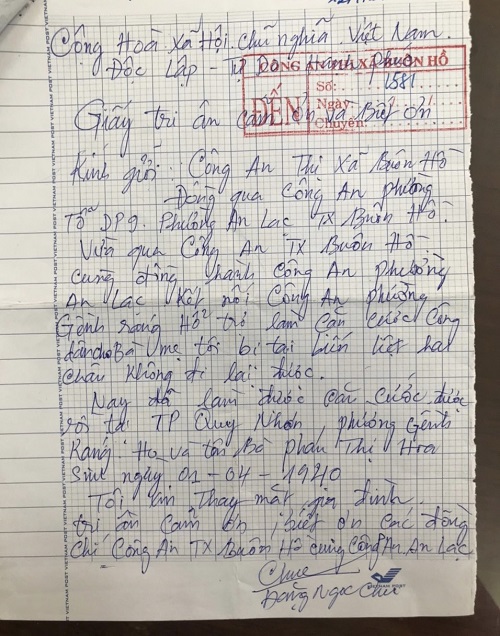 Cộng Hoà Xã Hội Chủ nghĩa Việt Nam.
Độc Lập - Tự Do Hạnh Phúc
CÔNG AN THỊ XÃ BUÔN HỒ
ĐẾN
Số: 1581
Ngày:
Chuyển:
Giấy tri ân cảm ơn và Biết ơn
Kính gửi: Công An Thị Xã Buôn Hồ
Đồng qua Công An phường
Tổ DP9. Phường An Lạc TX Buôn Hồ.
Vừa qua Công An TX Buôn Hồ.
cùng đồng hành Công An phường
An Lạc kết nối Công An phường
Gềnh ráng Hổ trợ làm căn cước Công
dân cho Bà mẹ tôi bị tai biến liệt hai
chân không đi lại được.
Nay đã làm được căn cước được
rồi tại TP Quy Nhơn, phường Gềnh
Ráng. Họ và tên Bà phan Thị Hoa
Sinh ngày 01-04-1940
Tôi xin thay mặt gia đình
tri ân cảm ơn, biết ơn các đồng
Chí Công An TX Buôn Hồ cùng Công An An Lạc
Đặng Ngọc
VIETNAM POST